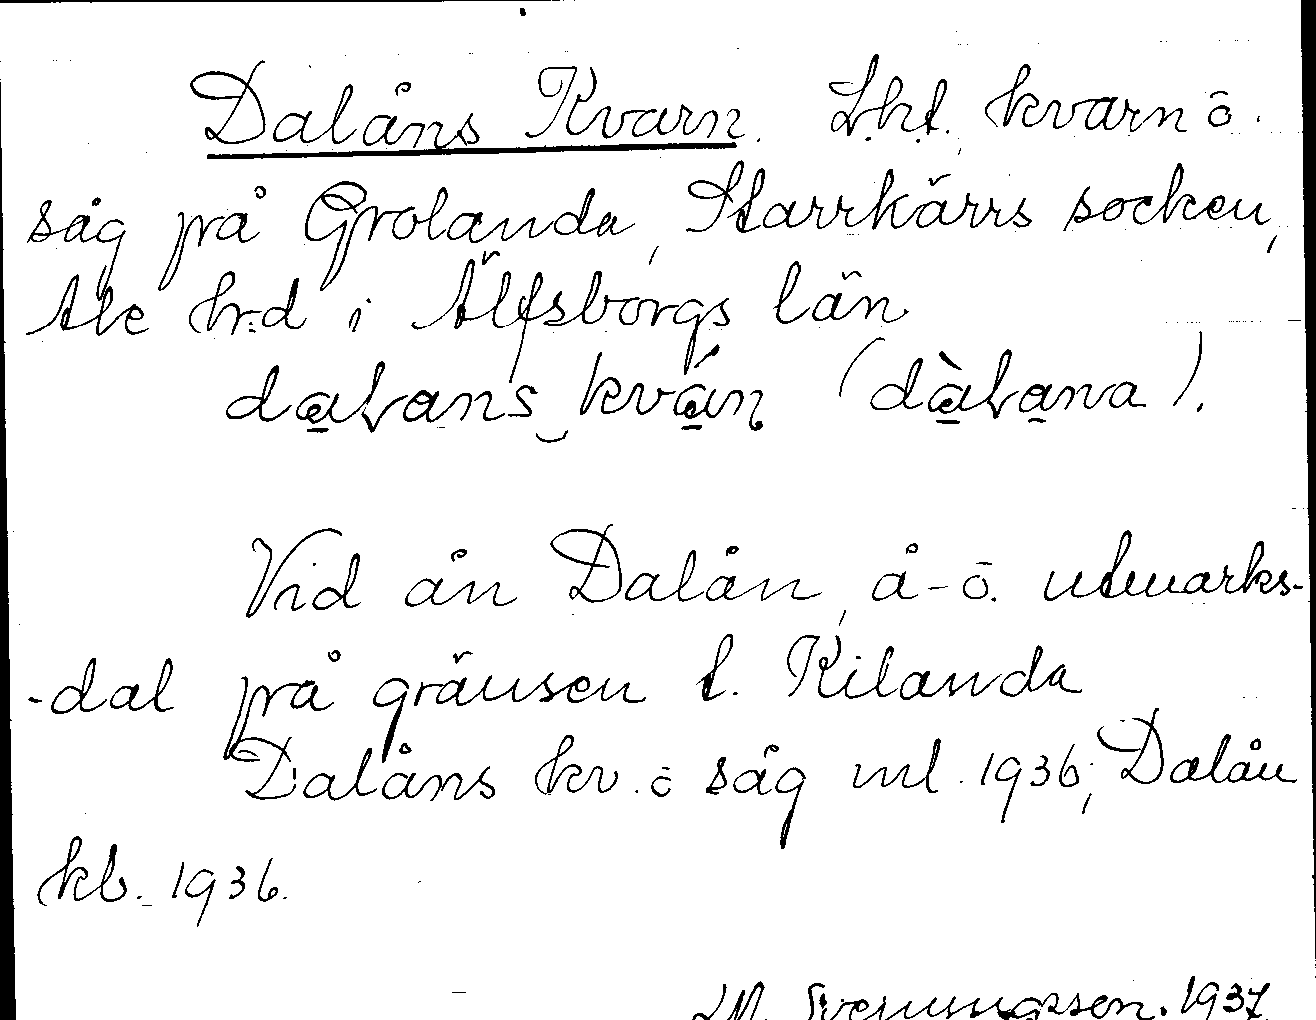 Dalåns Kvarn. Lht. kvarn o.
såg på Grolanda, Starrkärrs socken,
Ale hrd i Älfsborgs län
dalans kván (dàlana).
Vid ån Dalån, å-ö. utmarks-
-dal på gränsen t. Kilanda
Dalåns kv. o såg ml. 1936; Dalån
kb. 1936.
Svenungsson. 1937